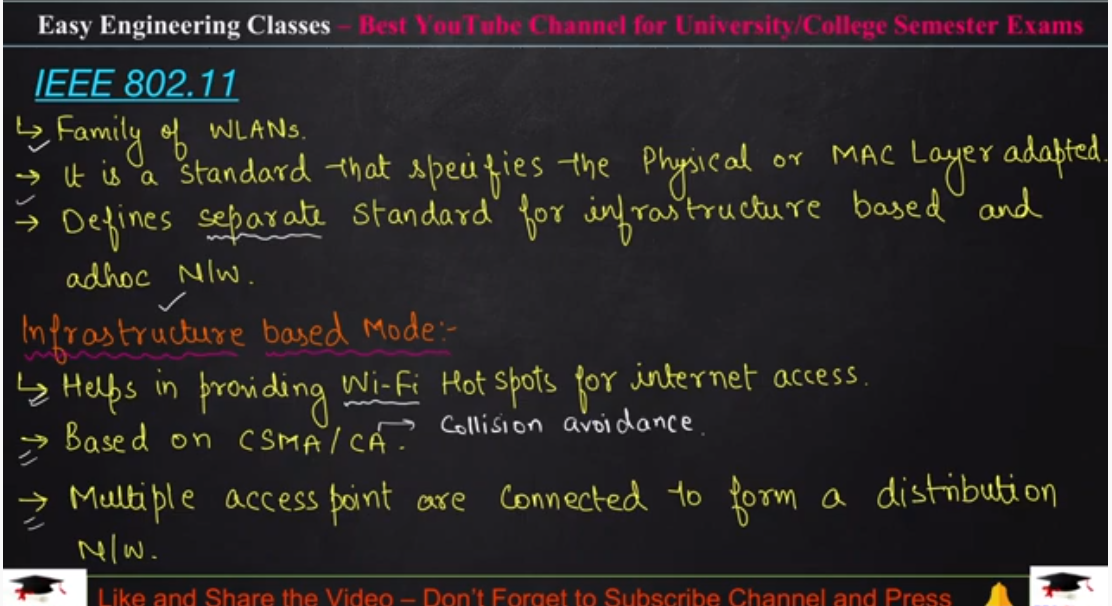 Easy Engineering Classes – Best YouTube Channel for University/College Semester Exams
IEEE 802.11
↳ Family of WLANs.
→ It is a standard that specifies the Physical or MAC Layer adapted.
→ Defines separate standard for infrastructure based and
adhoc N/W.
Infrastructure based Mode:-
↳ Helps in providing Wi-Fi Hot spots for internet access.
→ Based on CSMA/CA. → Collision avoidance.
→ Multiple access point are connected to form a distribution
N/W.
Like and Share the Video – Don't Forget to Subscribe Channel and Press